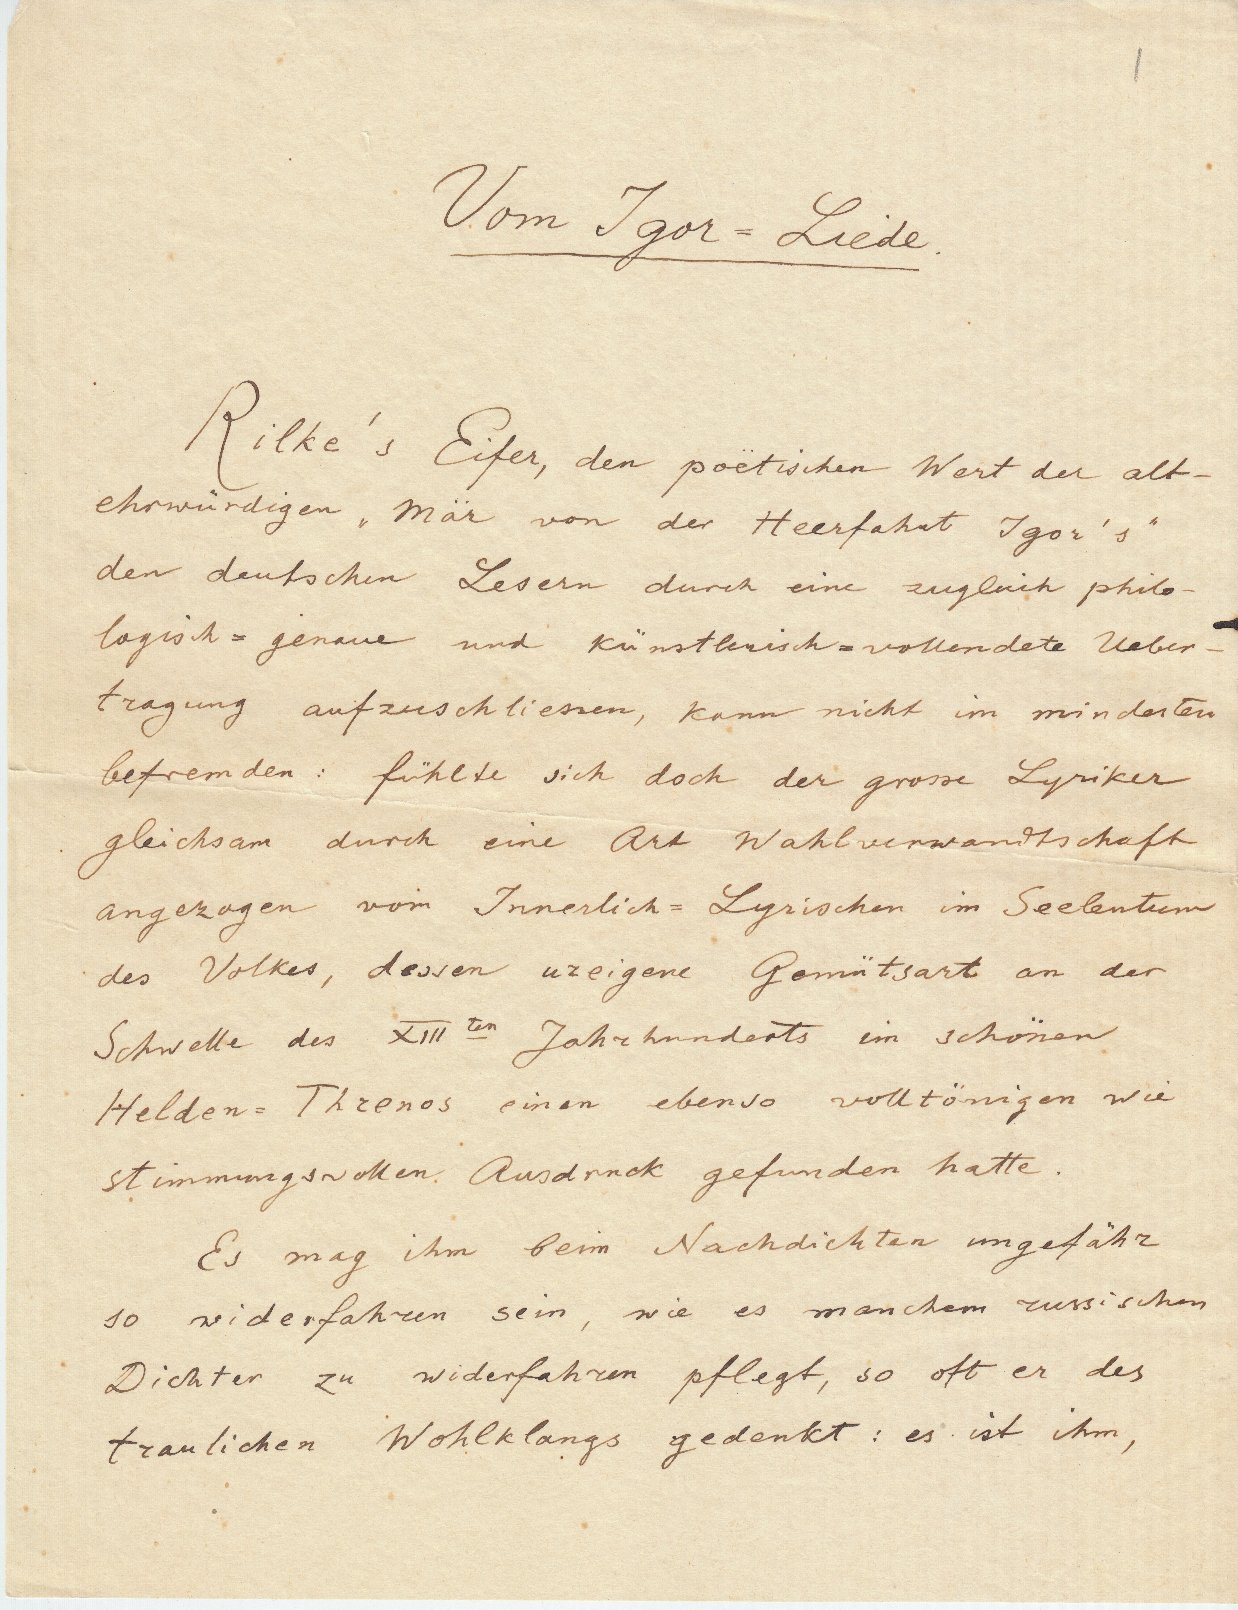 1
Vom Igor = Liede.
Rilke's Eifer, den poëtischen Wert der alt-
ehrwürdigen „Mär von der Heerfahrt Igor's“
den deutschen Lesern durch eine zugleich philo-
logisch = genaue und künstlerisch = vollendete Ueber-
tragung aufzuschliessen, kann nicht im mindesten
befremden: fühlte sich doch der grosse Lyriker
gleichsam durch eine Art Wahlverwandtschaft
angezogen vom Innerlich = Lyrischen im Seelentum
des Volkes, dessen ureigene Gemütsart an der
Schwelle des XIII ten Jahrhunderts im schönen
Helden = Threnos einen ebenso volltönigen wie
stimmungsvollen Ausdruck gefunden hatte.
Es mag ihm beim Nachdichten ungefähr
so widerfahren sein, wie es manchem russischen
Dichter zu widerfahren pflegt, so oft er des
traulichen Wohlklangs gedenkt: es ist ihm,